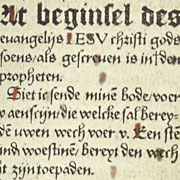 At beginsel des
euangelijs IESV christi gods
soens/als gescreuen is in den
propheten.
Siet ie sende minē bode/voer
v aenscijn/die welcke sal berey-
dē uwen wech voer v. Een stē
int woestine/bereyt den wech
zijt toepaden.